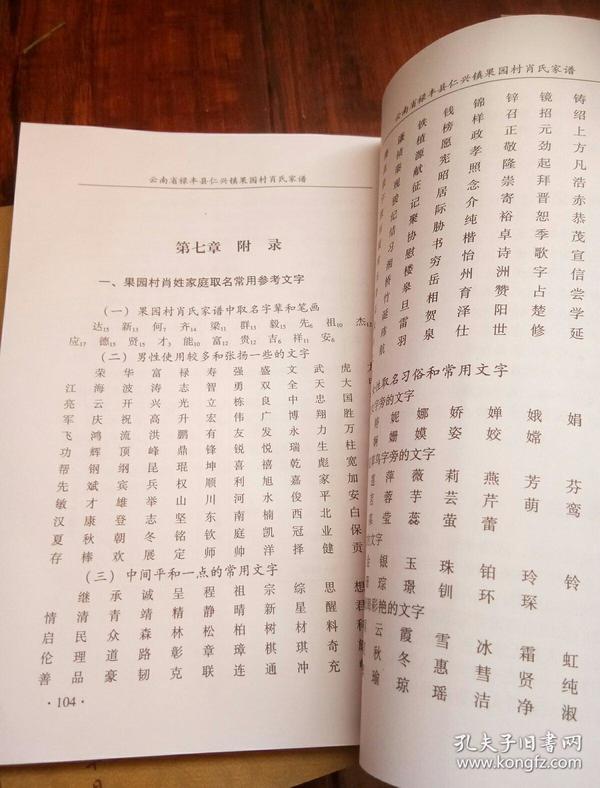 云南省禄丰县仁兴镇果园村肖氏家谱
第七章 附 录
一、果园村肖姓家庭取名常用参考文字
（一）果园村肖氏家谱中取名字辈和笔画
达15 新13 何7 齐14 梁11 群13 毅15 先6 祖10 杰12
应17 德15 贤15 才3 能10 富12 贵12 吉6 祥10 安6
（二）男性使用较多和张扬一些的文字
荣 华 富 禄 寿 强 盛 文 武 虎
江 海 波 涛 志 智 勇 双 全 天 大
亮 云 开 兴 光 立 栋 良 中 国
军 庆 祝 高 升 宏 伟 广 博 翔 胜
飞 鸿 流 洪 鹏 有 友 发 永 明 力 万
功 辉 顶 峰 鼎 锋 锐 悦 瑞 生 柱
帮 钢 纲 昆 琨 坤 喜 禧 乾 彪 宽
先 斌 宾 兵 权 顺 利 旭 嘉 家 加
敏 才 雄 举 山 川 河 水 俊 平 安
汉 康 登 志 坚 东 南 楠 西 北 白
夏 秋 朝 冬 铭 钦 庭 凯 冠 业 保
存 棒 欢 展 定 师 帅 洋 择 健 贡
（三）中间平和一点的常用文字
继 承 诚 呈 程 祖 宗 综 思 想
情 清 青 精 静 晴 新 星 醒 君
启 民 众 森 林 松 柏 树 材 料 和
伦 理 道 路 彰 章 璋 棋 琪 奇
善 品 豪 韧 克 联 连 通 冲 充
· 104 ·
云南省禄丰县仁兴镇果园村肖氏家谱
钱 锦 锌 镜 铸
谦 铁 榜 样 召 招 绍
植 愿 政 正 元 上
源 宪 孝 敬 劲 方
献 昭 照 隆 起 凡
征 居 念 崇 拜 浩
记 际 介 寄 晋 赤
聚 胁 纯 裕 恕 恭
协 书 楷 卓 季 茂
慰 穷 怡 诗 歌 宣
楼 岳 州 洲 字 信
泉 相 育 赞 占 尝
旦 贺 泽 阳 楚 学
雷 泉 仕 世 修 延
羽
性取名习俗和常用文字
妮 娜 娇 婵 娥 娟
姗 嫫 姿 姣 嫦
萍 薇 莉 燕 芳 芬
蓉 芋 芸 芹 萌 鸾
莹 蕊 萤 蕾
银 玉 珠 铂 玲 铃
琼 璟 钏 环 琛
彩艳的文字
云 霞 雪 冰 霜 虹
秋 冬 惠 彗 贤 纯
瑜 琼 瑶 洁 净 淑
孔夫子旧书网
www.kongfz.com